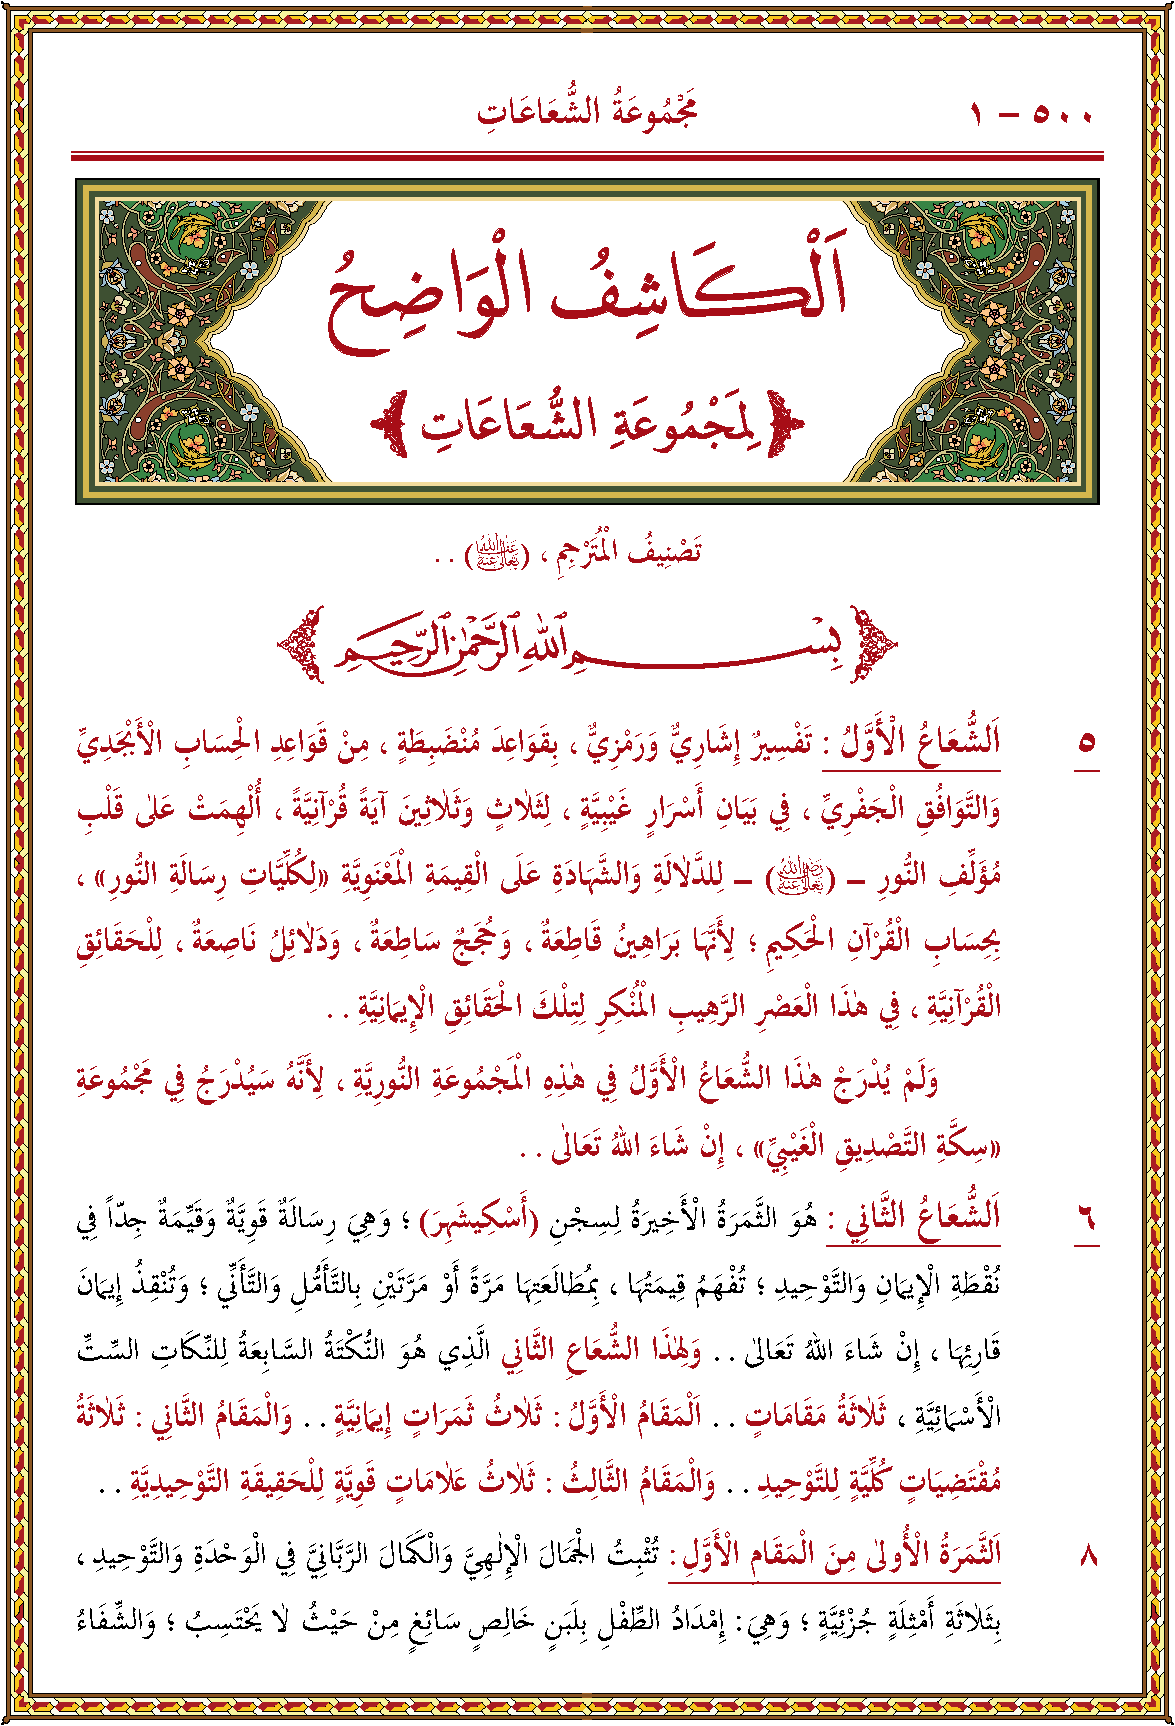 ٥٠٠ – ١
مَجْمُوعَةُ الشُّعَاعَاتِ
اَلْكَاشِفُ الْوَاضِحُ
لِمَجْمُوعَةِ الشُّعَاعَاتِ
تَصْنِيفُ الْمُتَرْجِمِ ، (عَفَا اللهُ تَعَالىٰ عَنْهُ) . .
بِسْمِ اللهِ الرَّحْمٰنِ الرَّحِيمِ
٥ اَلشُّعَاعُ الْأَوَّلُ : تَفْسِيرٌ إِشَارِيٌّ وَرَمْزِيٌّ ، بِقَوَاعِدَ مُنْضَبِطَةٍ ، مِنْ قَوَاعِدِ الْحِسَابِ الْأَبْجَدِيِّ
وَالتَّوَافُقِ الْجَفْرِيِّ ، فِي بَيَانِ أَسْرَارٍ غَيْبِيَّةٍ ، لِثَلَاثٍ وَثَلَاثِينَ آيَةً قُرْآنِيَّةً ، أُلْهِمَتْ عَلىٰ قَلْبِ
مُؤَلِّفِ النُّورِ – (رَضِيَ اللهُ تَعَالىٰ عَنْهُ) – لِلدَّلَالَةِ وَالشَّهَادَةِ عَلَى الْقِيمَةِ الْمَعْنَوِيَّةِ «لِكُلِّيَّاتِ رِسَالَةِ النُّورِ» ،
بِحِسَابِ الْقُرْآنِ الْحَكِيمِ ؛ لِأَنَّهَا بَرَاهِينُ قَاطِعَةٌ ، وَحُجَجٌ سَاطِعَةٌ ، وَدَلَائِلُ نَاصِعَةٌ ، لِلْحَقَائِقِ
الْقُرْآنِيَّةِ ، فِي هٰذَا الْعَصْرِ الرَّهِيبِ الْمُنْكِرِ لِتِلْكَ الْحَقَائِقِ الْإِيمَانِيَّةِ . .
وَلَمْ يُدْرَجْ هٰذَا الشُّعَاعُ الْأَوَّلُ فِي هٰذِهِ الْمَجْمُوعَةِ النُّورِيَّةِ ، لِأَنَّهُ سَيُدْرَجُ فِي مَجْمُوعَةِ
«سِكَّةِ التَّصْدِيقِ الْغَيْبِيِّ» ، إِنْ شَاءَ اللهُ تَعَالىٰ . .
٦ اَلشُّعَاعُ الثَّانِي : هُوَ الثَّمَرَةُ الْأَخِيرَةُ لِسِجْنِ (أَسْكِيشَهِرَ) ؛ وَهِيَ رِسَالَةٌ قَوِيَّةٌ وَقَيِّمَةٌ جِدّاً فِي
نُقْطَةِ الْإِيمَانِ وَالتَّوْحِيدِ ؛ تُفْهَمُ قِيمَتُهَا ، بِمُطَالَعَتِهَا مَرَّةً أَوْ مَرَّتَيْنِ بِالتَّأَمُّلِ وَالتَّأَنِّي ؛ وَتُنْقِذُ إِيمَانَ
قَارِئِهَا ، إِنْ شَاءَ اللهُ تَعَالىٰ . . وَلِهٰذَا الشُّعَاعِ الثَّانِي الَّذِي هُوَ النُّكْتَةُ السَّابِعَةُ لِلنِّكَاتِ السِّتِّ
الْأَسْمَائِيَّةِ ، ثَلَاثَةُ مَقَامَاتٍ . . اَلْمَقَامُ الْأَوَّلُ : ثَلَاثُ ثَمَرَاتٍ إِيمَانِيَّةٍ . . وَالْمَقَامُ الثَّانِي : ثَلَاثَةُ
مُقْتَضِيَاتٍ كُلِّيَّةٍ لِلتَّوْحِيدِ . . وَالْمَقَامُ الثَّالِثُ : ثَلَاثُ عَلَامَاتٍ قَوِيَّةٍ لِلْحَقِيقَةِ التَّوْحِيدِيَّةِ . .
٨ اَلثَّمَرَةُ الْأُولىٰ مِنَ الْمَقَامِ الْأَوَّلِ : تُثْبِتُ الْجَمَالَ الْإِلٰهِيَّ وَالْكَمَالَ الرَّبَّانِيَّ فِي الْوَحْدَةِ وَالتَّوْحِيدِ ،
بِثَلَاثَةِ أَمْثِلَةٍ جُزْئِيَّةٍ ؛ وَهِيَ : إِمْدَادُ الطِّفْلِ بِلَبَنٍ خَالِصٍ سَائِغٍ مِنْ حَيْثُ لَا يَحْتَسِبُ ؛ وَالشِّفَاءُ